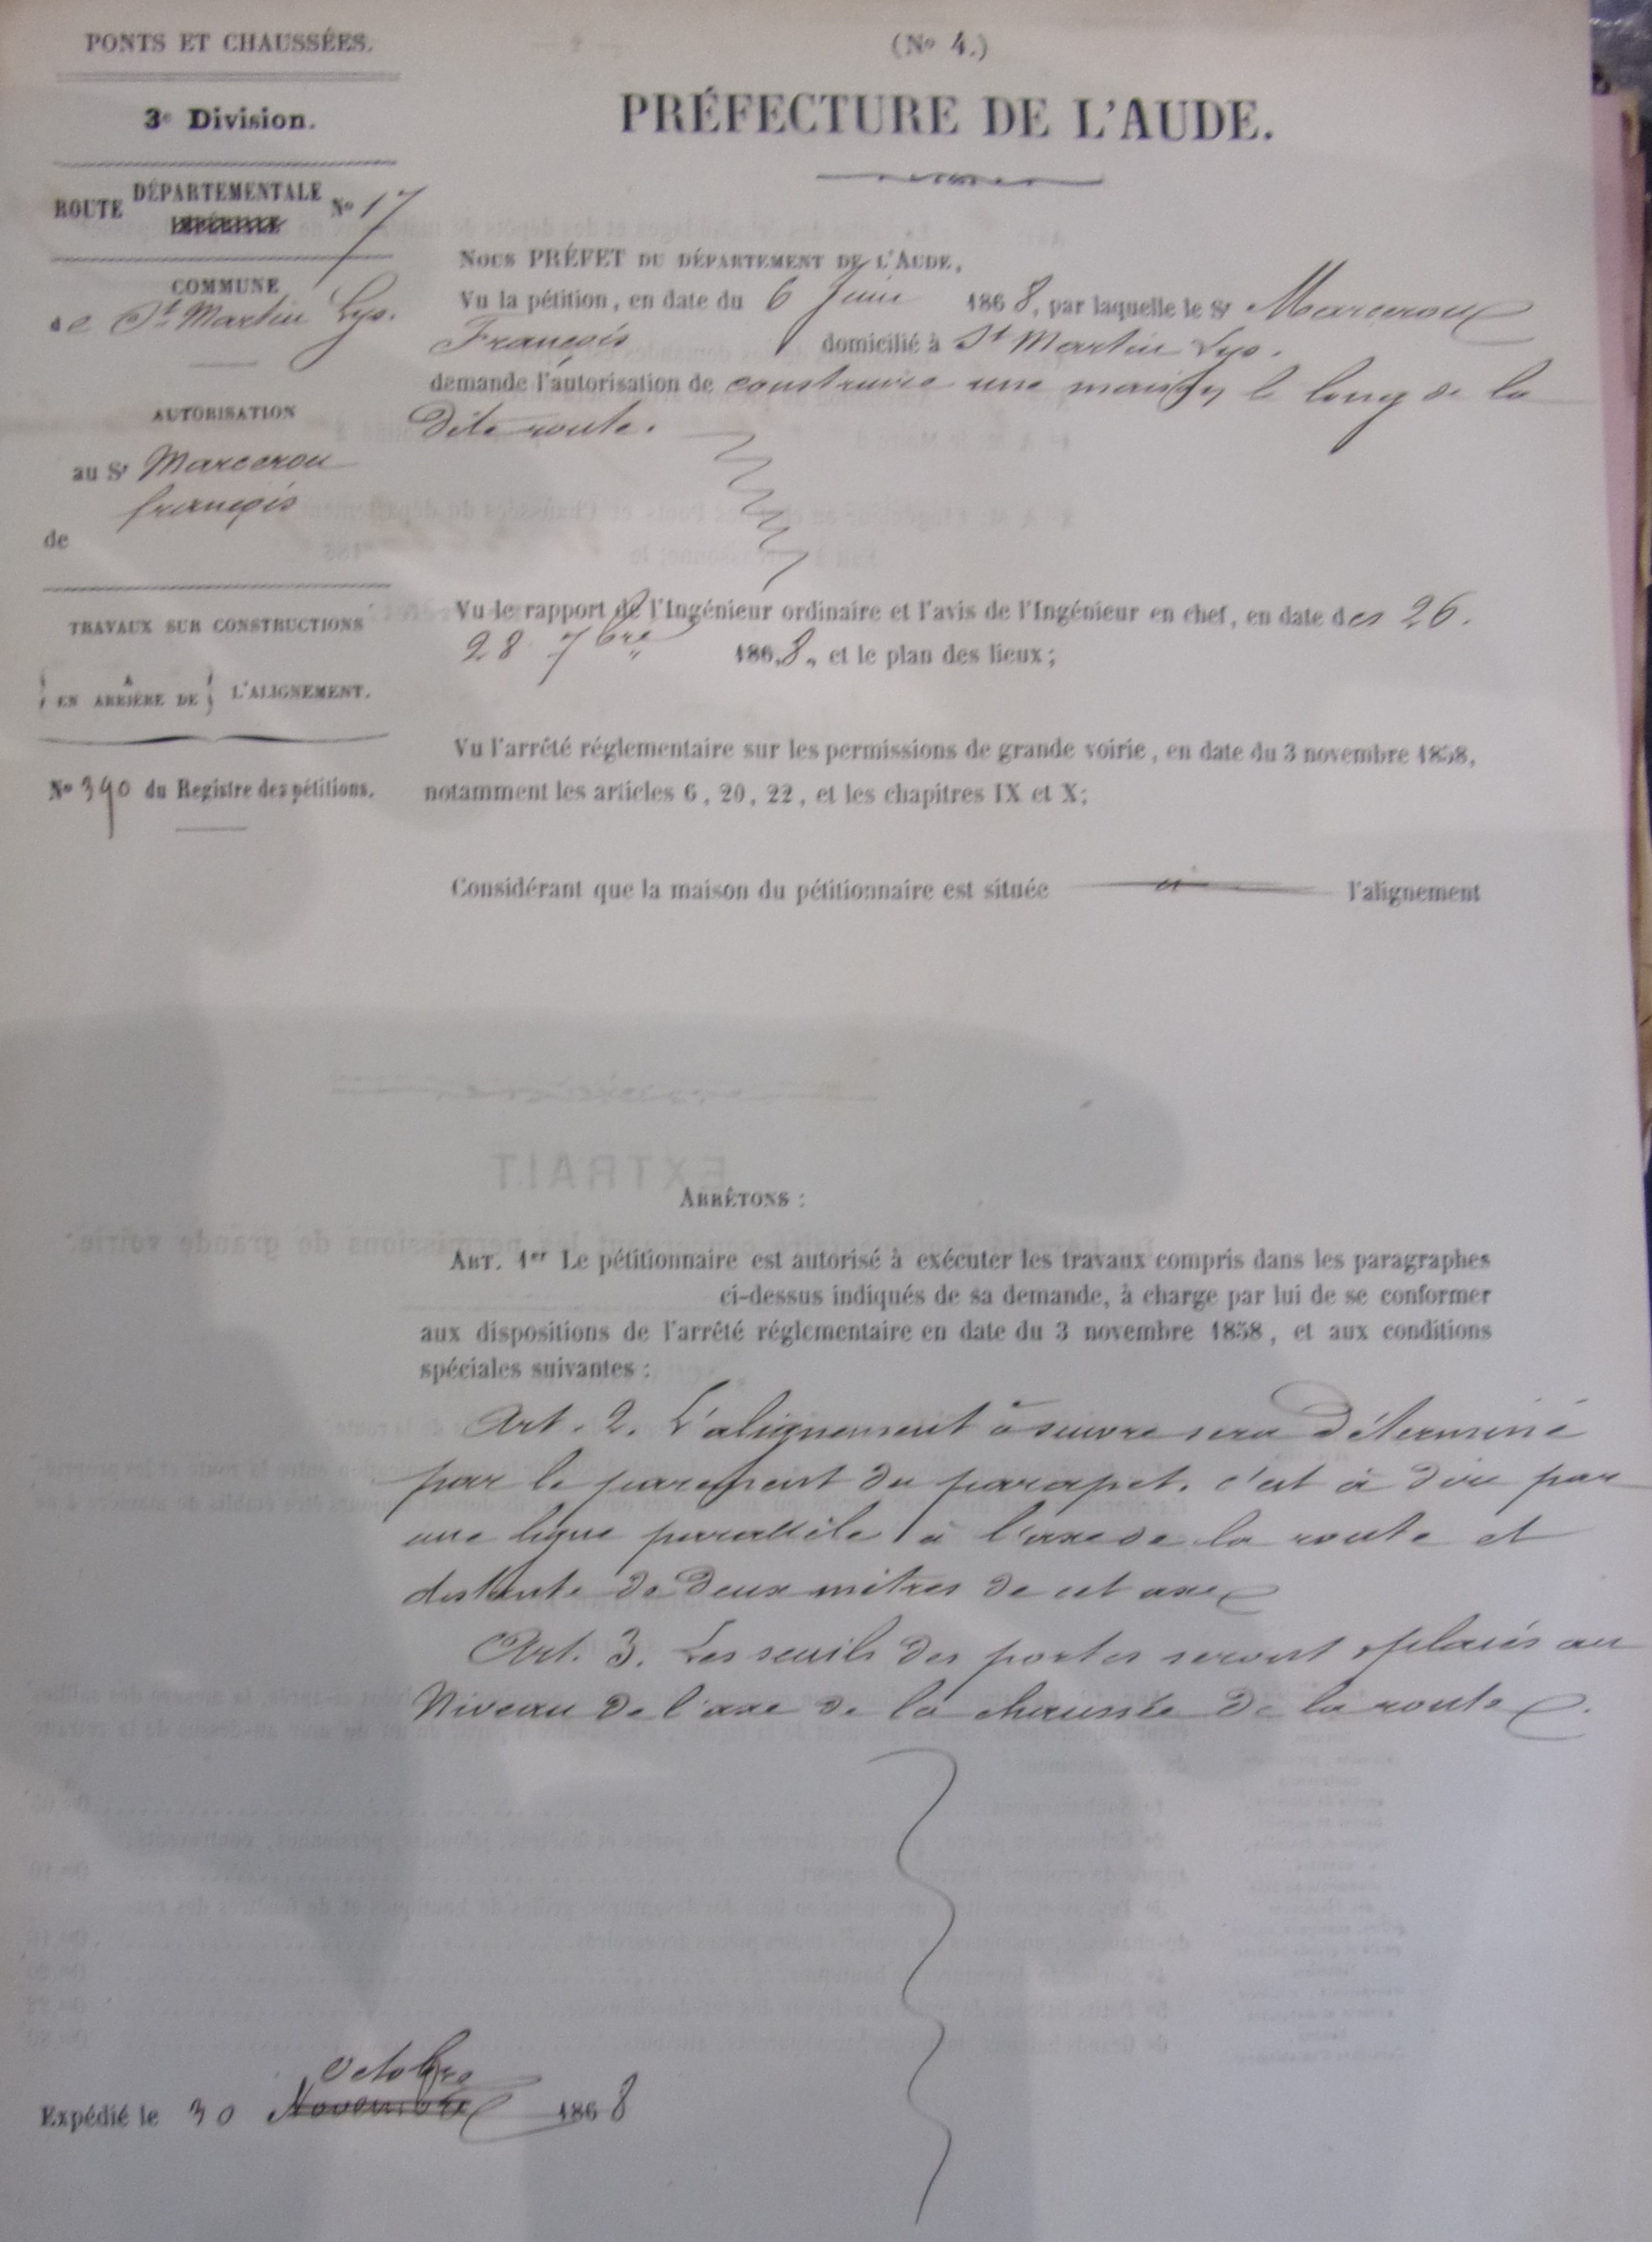 PONTS ET CHAUSSÉES.
3e Division.
ROUTE DÉPARTEMENTALE No 17
IMPÉRIALE
COMMUNE
de St Martin Lys.
AUTORISATION
au Sr Marcerou
françois
de
TRAVAUX SUR CONSTRUCTIONS
A
EN ARRIÈRE DE } L'ALIGNEMENT.
No 390 du Registre des pétitions.
(No 4.)
PRÉFECTURE DE L'AUDE.
NOUS PRÉFET DU DÉPARTEMENT DE L'AUDE,
Vu la pétition, en date du 6 Juin 1868, par laquelle le Sr Marcerou
François domicilié à St Martin Lys.
demande l'autorisation de construire une maison le long de la
dite route.
Vu le rapport de l'Ingénieur ordinaire et l'avis de l'Ingénieur en chef, en date des 26.
28 7bre 1868, et le plan des lieux;
Vu l'arrêté réglementaire sur les permissions de grande voirie, en date du 3 novembre 1858,
notamment les articles 6, 20, 22, et les chapitres IX et X;
Considérant que la maison du pétitionnaire est située à l'alignement
ARRÊTONS :
ART. 1er Le pétitionnaire est autorisé à exécuter les travaux compris dans les paragraphes
ci-dessus indiqués de sa demande, à charge par lui de se conformer
aux dispositions de l'arrêté réglementaire en date du 3 novembre 1858, et aux conditions
spéciales suivantes :
Art. 2. L'alignement à suivre sera déterminé
par le parement du parapet. c'est à dire par
une ligne parallèle à l'axe de la route et
distante de deux mètres de cet axe
Art. 3. Les seuils des portes seront placés au
Niveau de l'axe de la chaussée de la route.
Octobre
Expédié le 30 Novembre 1868